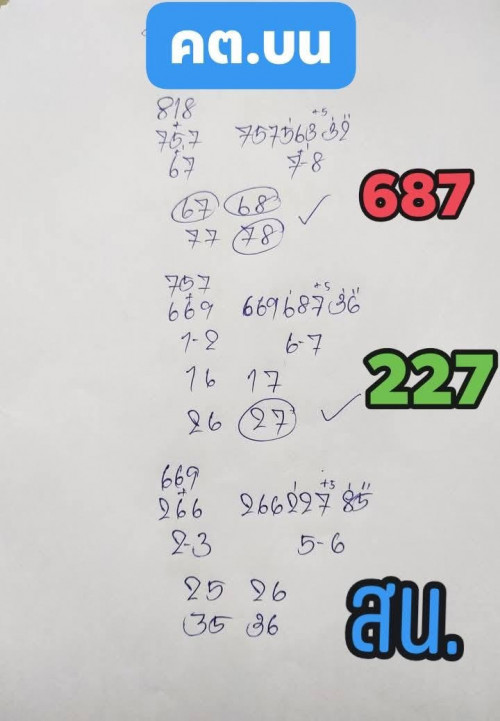 คต.บน
818
+
757 757563 32
+5
67 7-8
67 68
77 78
687
757
+
669 669687 36
+5
1-2 6-7
16 17
26 27
227
669
+
266 266227 85
+5
2-3 5-6
25 26
35 36
สน.